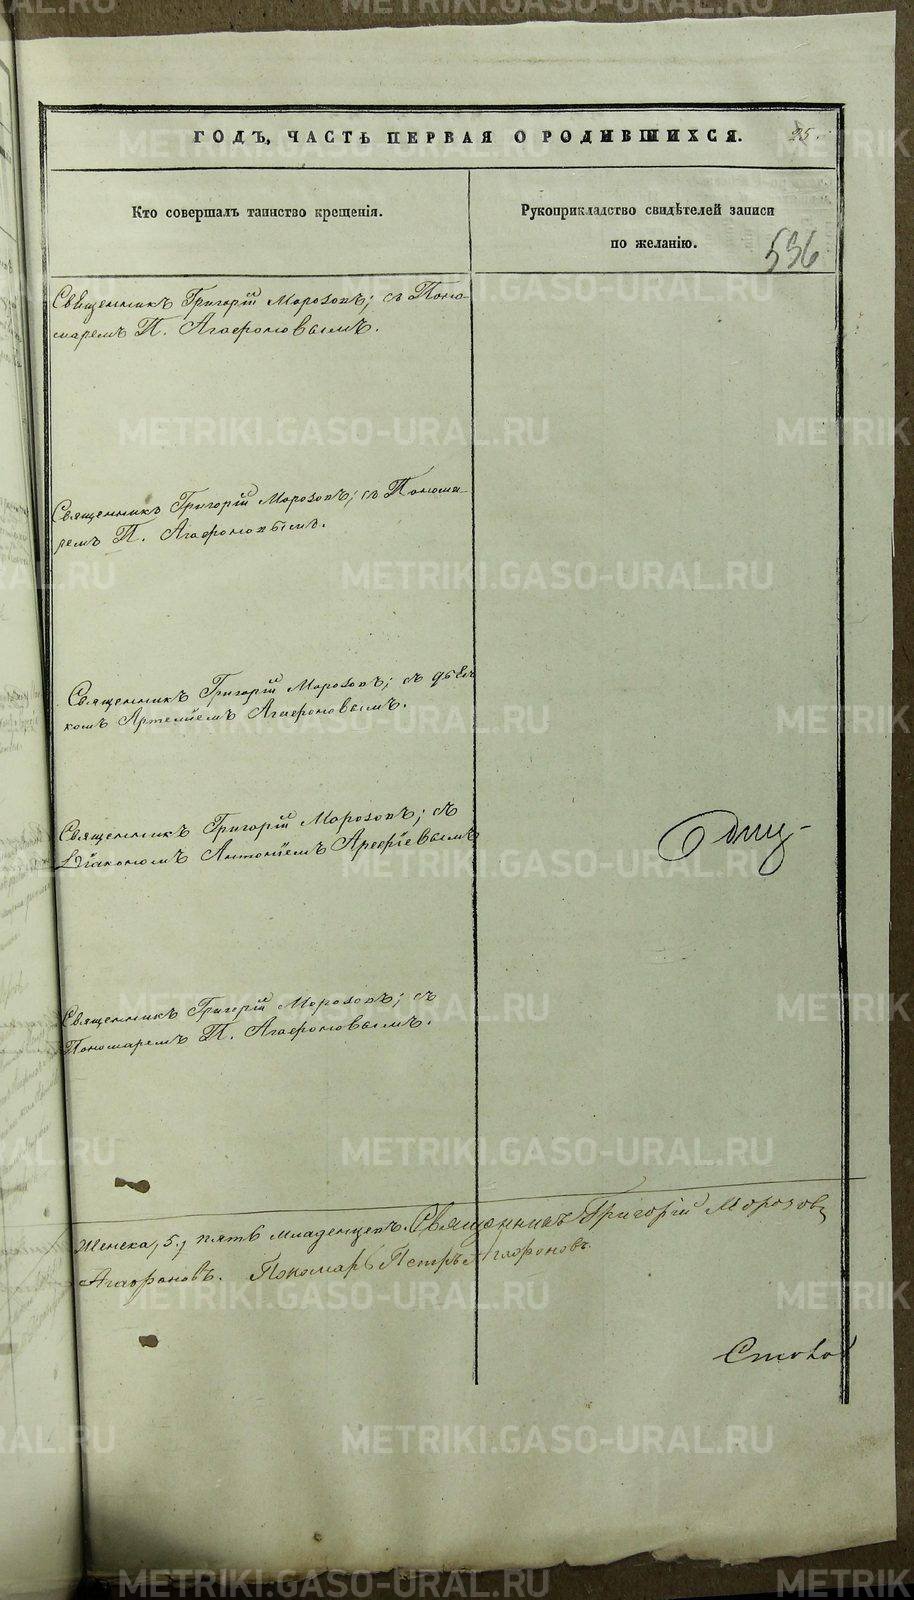 ГОДЪ, ЧАСТЬ ПЕРВАЯ О РОДИВШИХСЯ.
25.
Кто совершалъ таинство крещенія.
Рукоприкладство свидѣтелей записи
по желанію.
536
Священникъ Григорій Морозовъ; съ Поно-
маремъ П. Агафоновымъ.
Священникъ Григорій Морозовъ; съ Понома-
ремъ П. Агафоновымъ.
Священникъ Григорій Морозовъ; съ дьяч
комъ Артеміемъ Агафоновымъ.
Священникъ Григорій Морозовъ; съ
Діакономъ Антоніемъ Арефіевымъ
Священникъ Григорій Морозовъ; съ
Пономаремъ П. Агафоновымъ.
Женска, 5, пять младенцевъ. Священникъ Григорій Морозовъ
Агафоновъ. Пономарь Петръ Агафоновъ.
METRIKI.GASO-URAL.RU